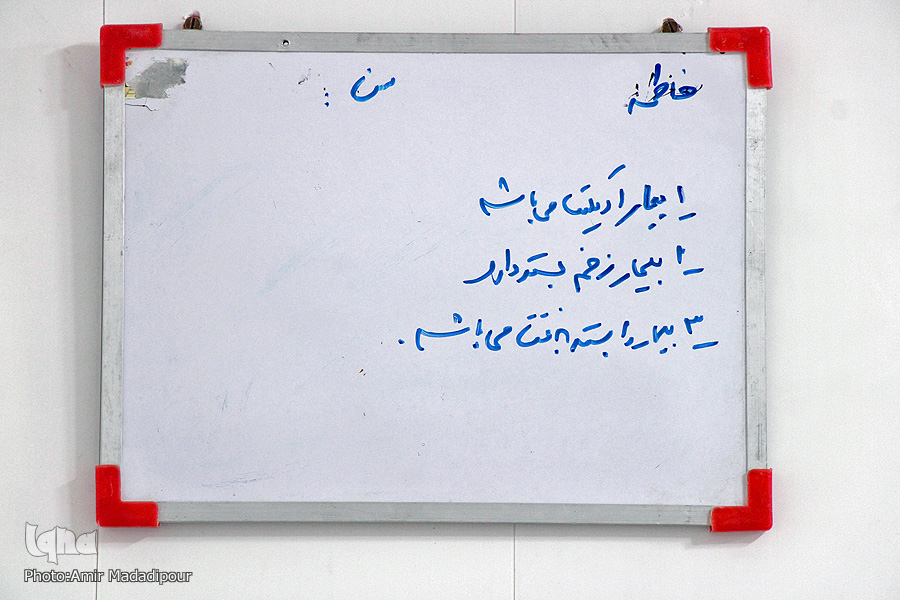 فاطمه سن :
۱ـ بیمار ادیکت می باشد
۲ـ بیمار زخم بستر دارد
۳ـ بیمار وابسته به تخت می باشد .
iqna
Photo:Amir Madadipour